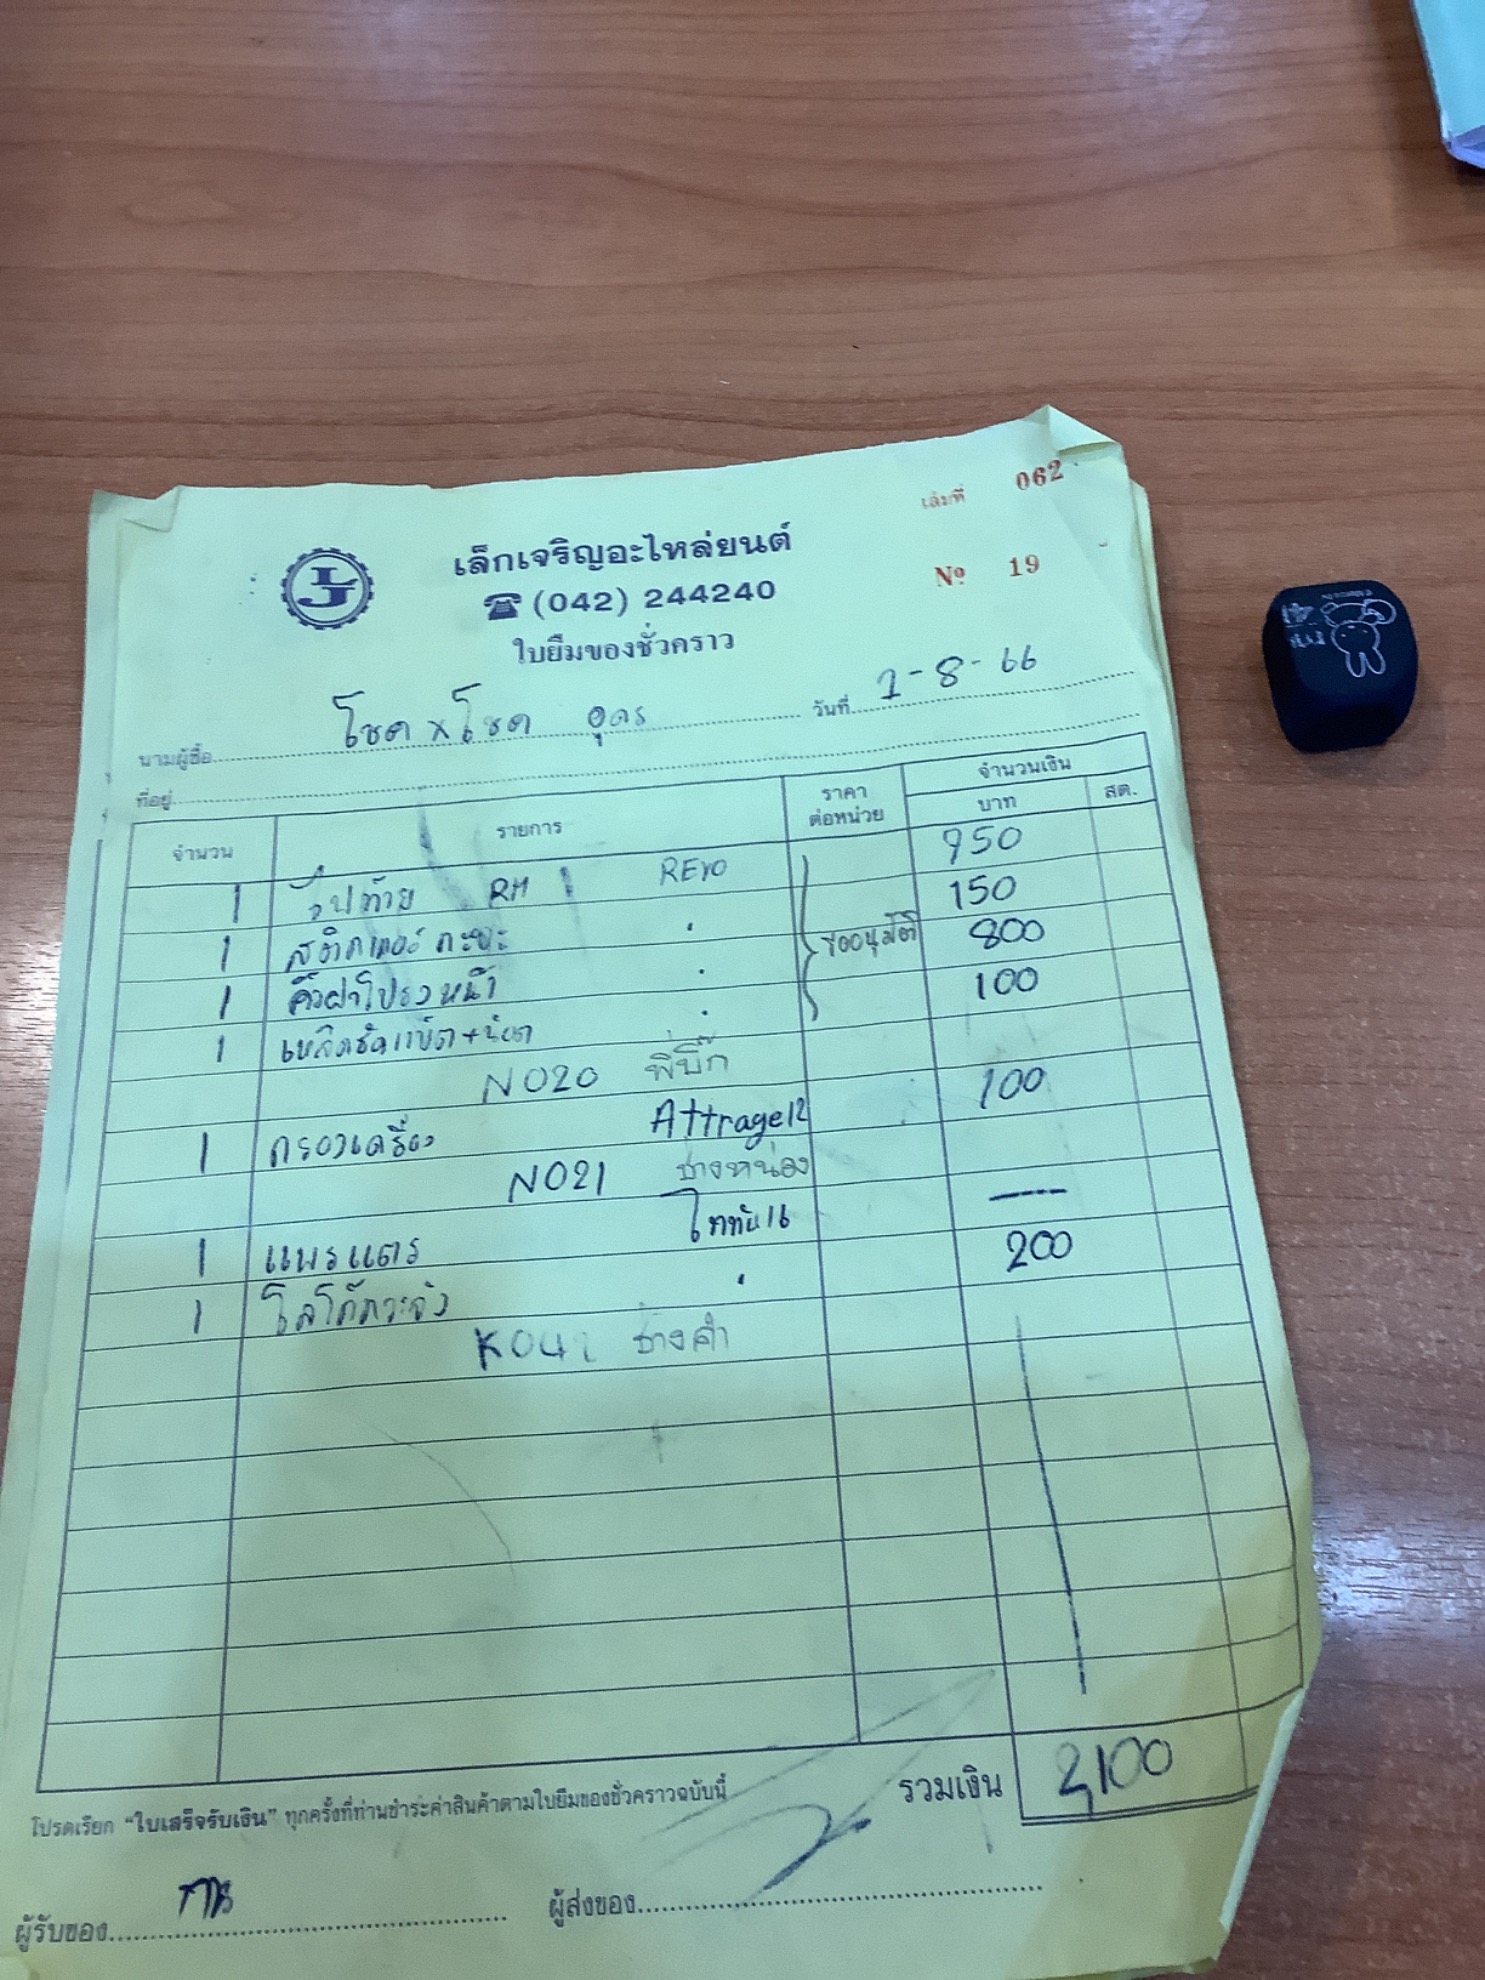 เล่มที่ 062
LJ
เล็กเจริญอะไหล่ยนต์
☎ (042) 244240
№ 19
ใบยืมของชั่วคราว
นามผู้ซื้อ โชค x โชค อุดร วันที่ 1-8-66
ที่อยู่
จำนวน รายการ ราคาต่อหน่วย จำนวนเงิน บาท สต.
1 ไฟท้าย RH REVO 950
1 สติกเกอร์ กะบะ 150
1 คิ้วฝาโปรงหน้า 800
1 เหล็กรัดแบ็ต+น๊อต 100
ขออนุมัติ
NO20 พี่บิ๊ก
1 กรองเครื่อง Attrage12 100
NO21 ช่างหน่อง
1 แพรแตร ไททัน16
1 โลโก้กระจัง 200
ช่างคำ
รวมเงิน 2,100
โปรดเรียก "ใบเสร็จรับเงิน" ทุกครั้งที่ท่านชำระค่าสินค้าตามใบยืมของชั่วคราวฉบับนี้
ผู้รับของ ผู้ส่งของ